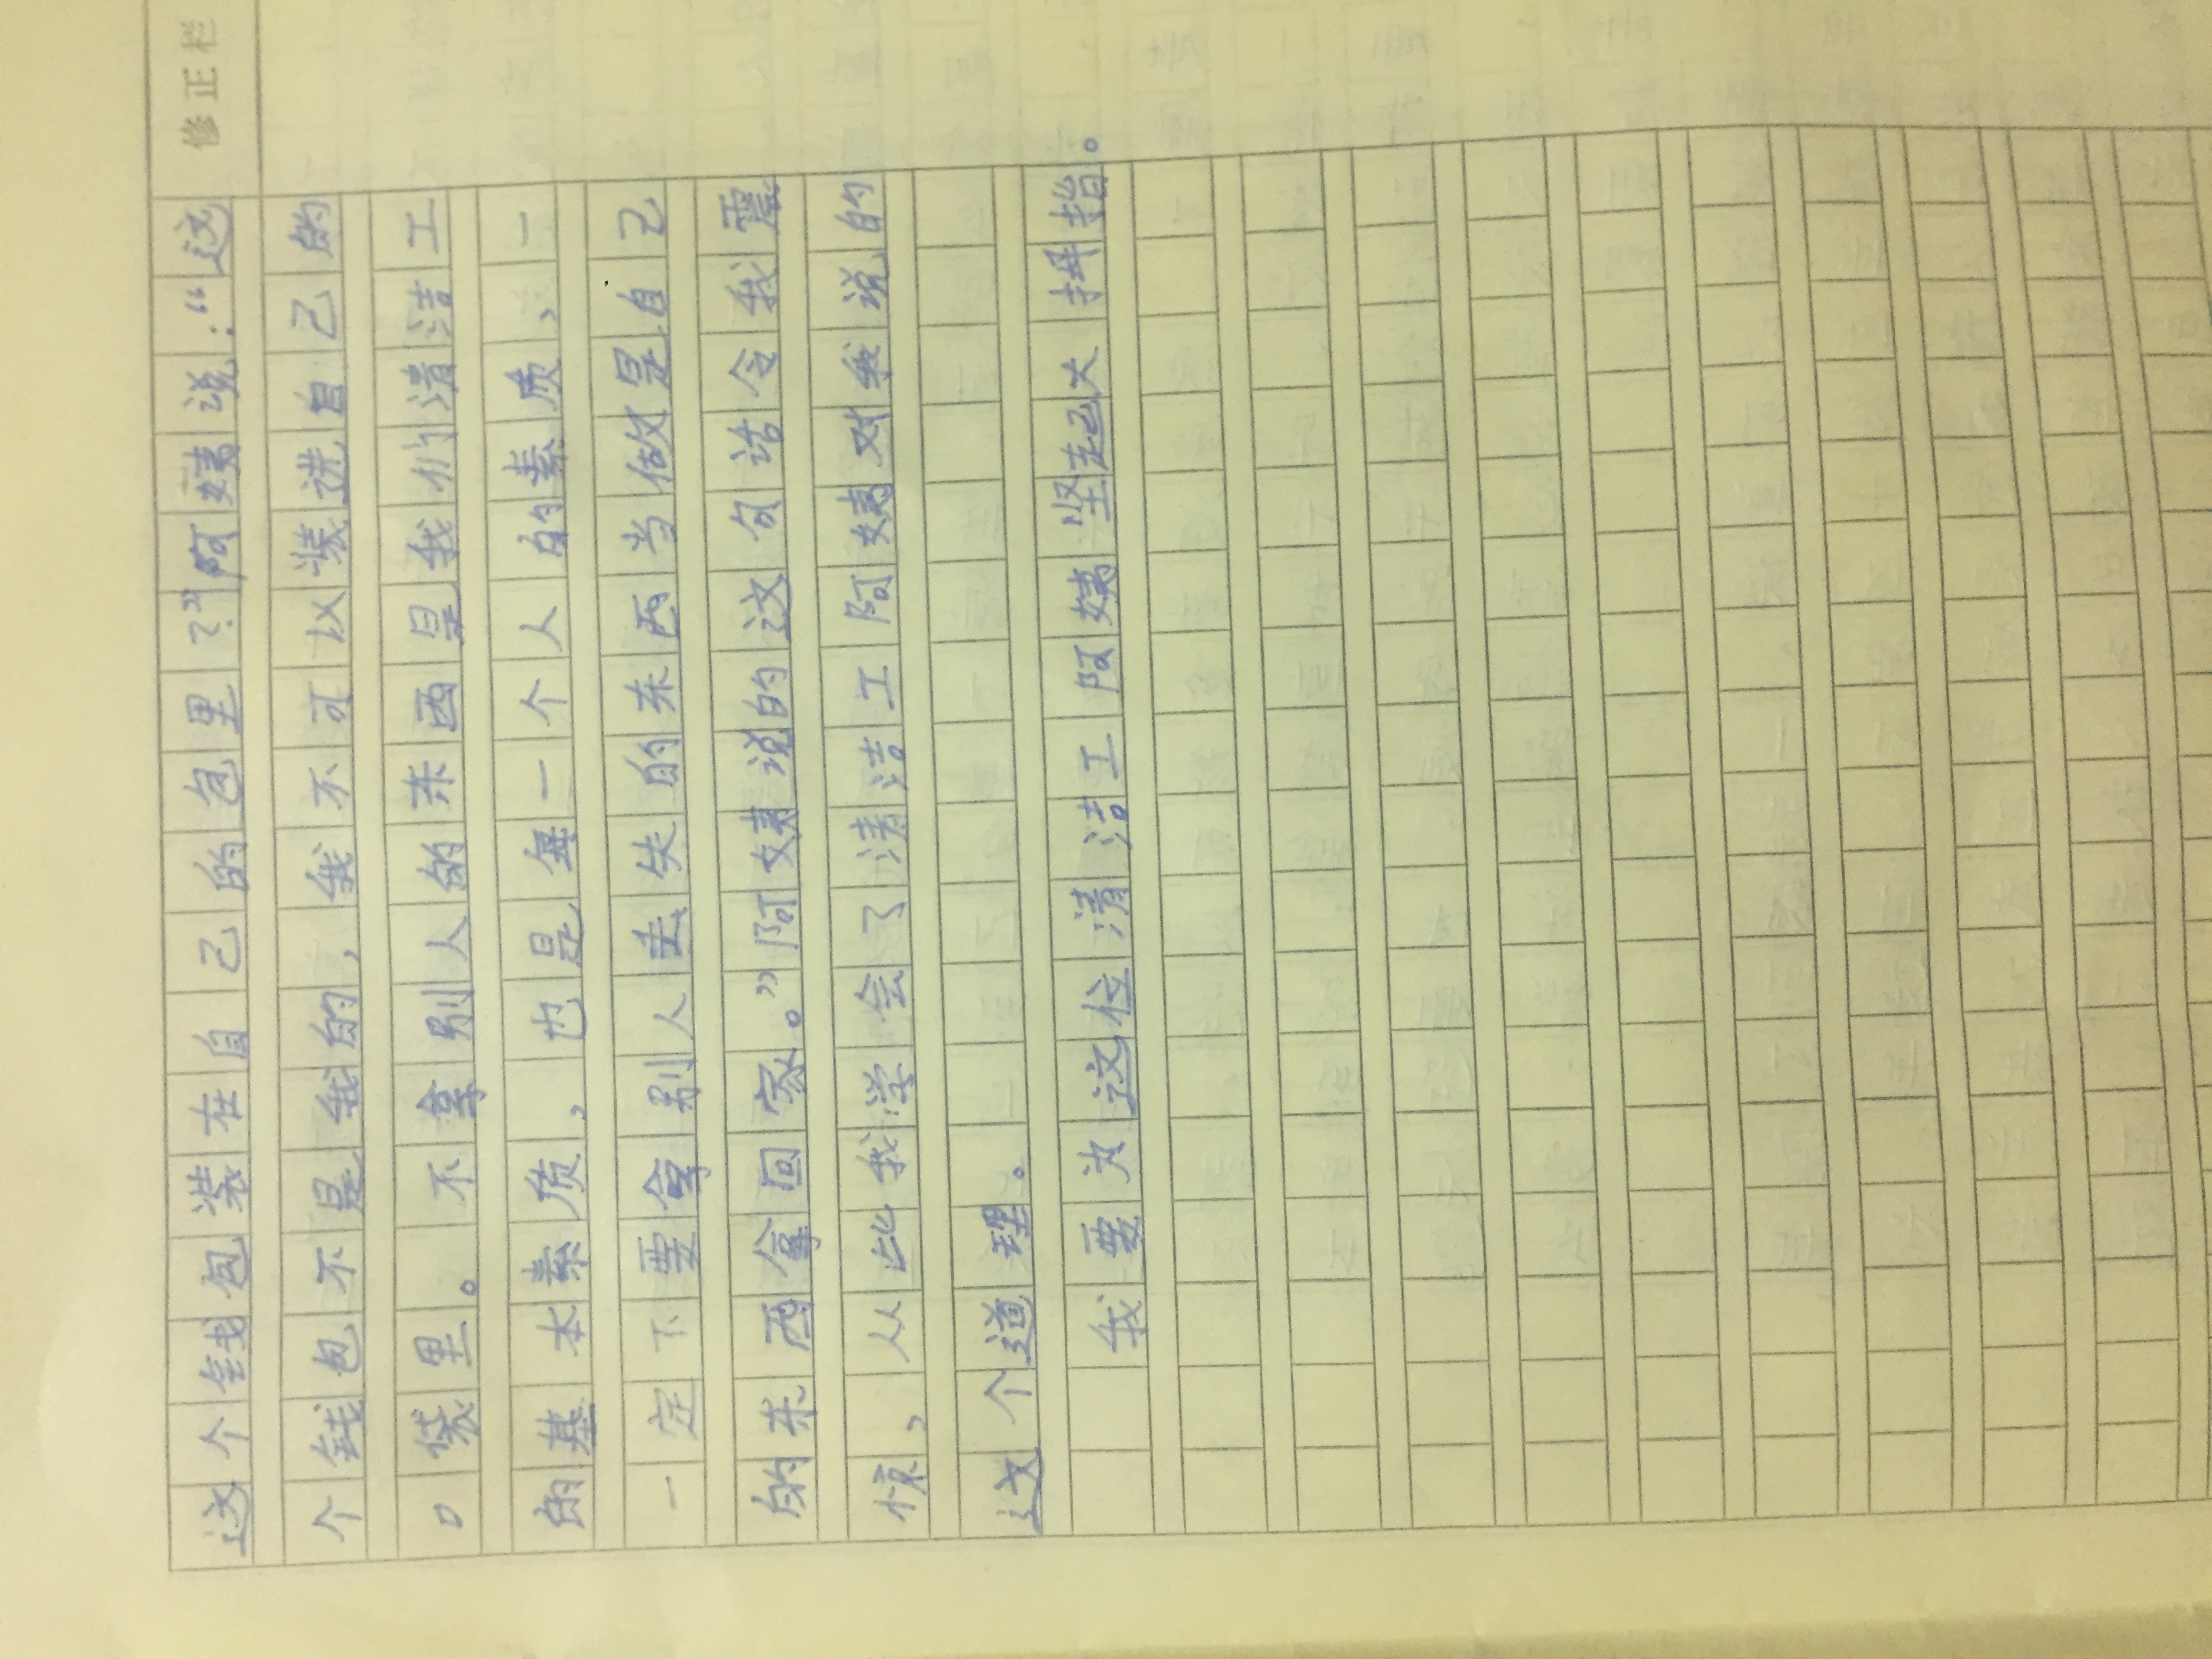 修正栏
这个钱包装在自己的包里?”阿姨说:“这
个钱包不是我的,我不可以装进自己的
口袋里。不拿别人的东西是我们清洁工
的基本素质,也是每一个人的素质,一
一定不要拿别人丢失的东西当做是自己
的东西拿回家。”阿姨说的这句话令我震
惊,从此我学会了清洁工阿姨对我说的
这个道理。
我要为这位清洁工阿姨坚起大拇指。